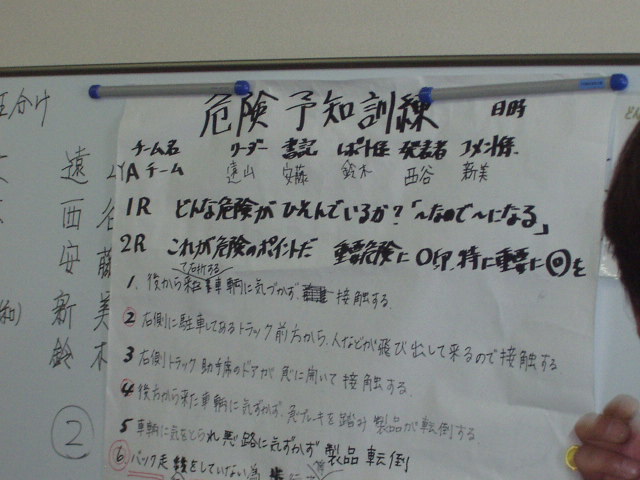 危険予知訓練 日時
チーム名 リーダー 書記 レポート係 発表者 コメント係
Aチーム 遠山 安藤 鈴木 西谷 新美
1R どんな危険がひそんでいるか？「〜なので〜になる」
2R これが危険のポイントだ 重要危険に〇印、特に重要に◎を
1. 後から来た車輌に気づかず 接触する
② 右側に駐車してあるトラック前方から、人などが飛び出して来るので接触する
3 右側トラック助手席のドアが急に開いて接触する
④ 後方から来た車輌に気ずかず、急ブレーキを踏み製品が転倒する
5 車輌に気をとられ悪路に気ずかず製品転倒
⑥ バック走 をしていない為
製品転倒
分け
遠
西谷
安藤
新美
鈴木
②